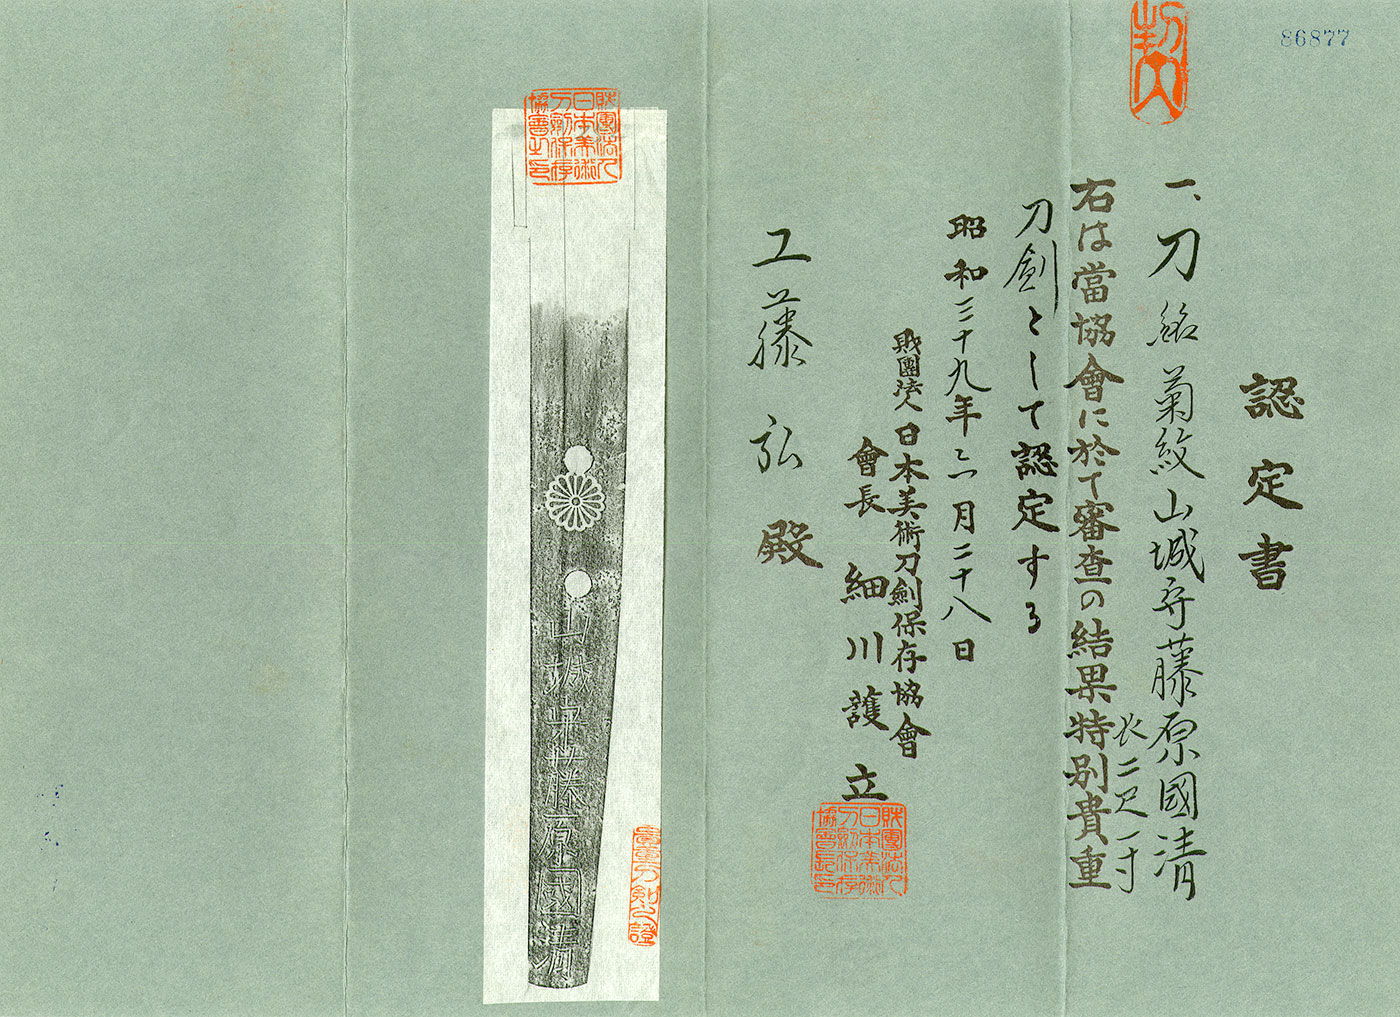 86877
認定書
一、刀 銘 菊紋山城守藤原國清
長二尺一寸
右は當協會に於て審査の結果特別貴重
刀劍として認定する
昭和三十九年六月二十八日
財團法人日本美術刀劍保存協會
會長 細川護立
工藤弘殿
財團法人日本美術刀劍保存協會長印
財團法人日本美術刀劍保存協會之印
山城守藤原國清